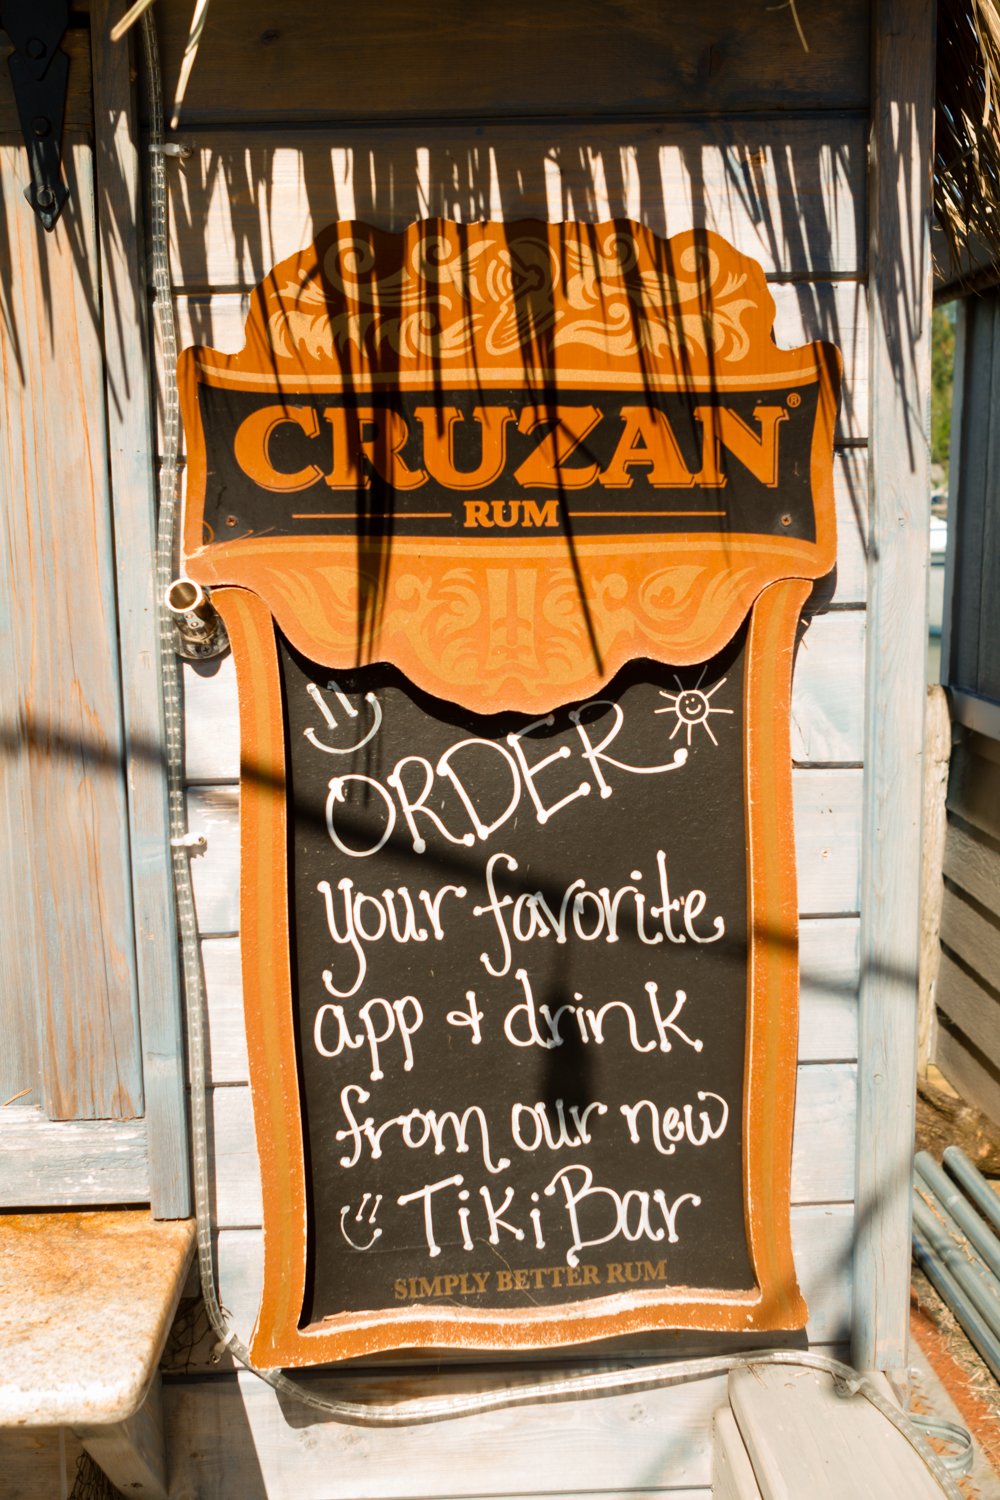 CRUZAN®
RUM
ORDER
your favorite
app + drink
from our new
Tiki Bar
SIMPLY BETTER RUM